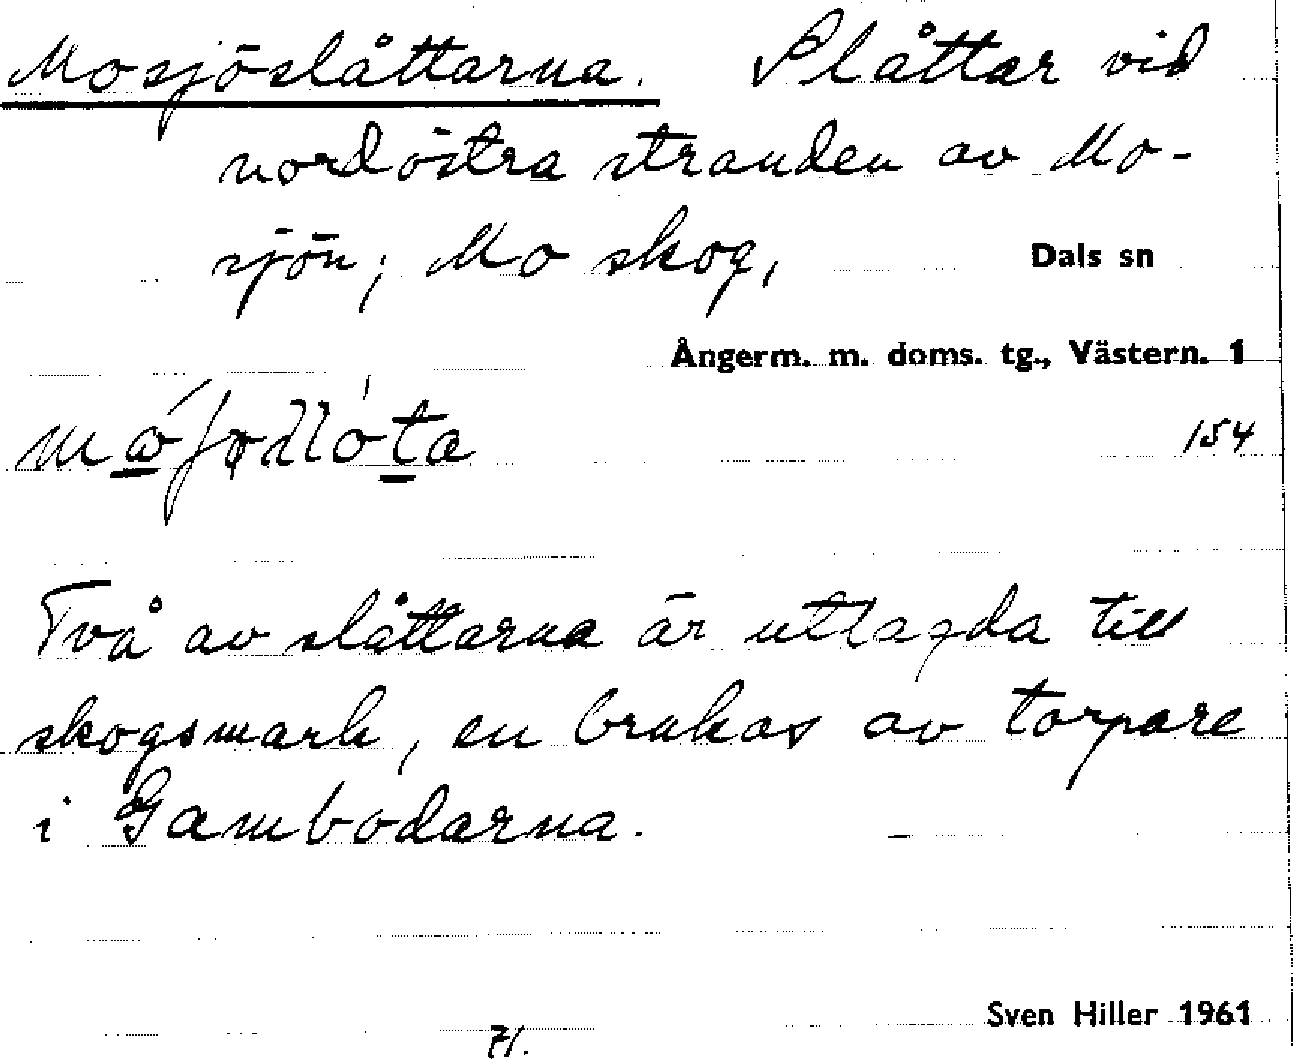 Mosjöslåttarna. Slåttar vid
nordöstra stranden av Mo-
sjön; Mo skog, Dals sn
Ångerm. m. doms. tg., Västern. 1
154
Två av slåttarna är utlagda till
skogsmark, en brukas av torpare
i Gambodarna.
Sven Hiller 1961
71.